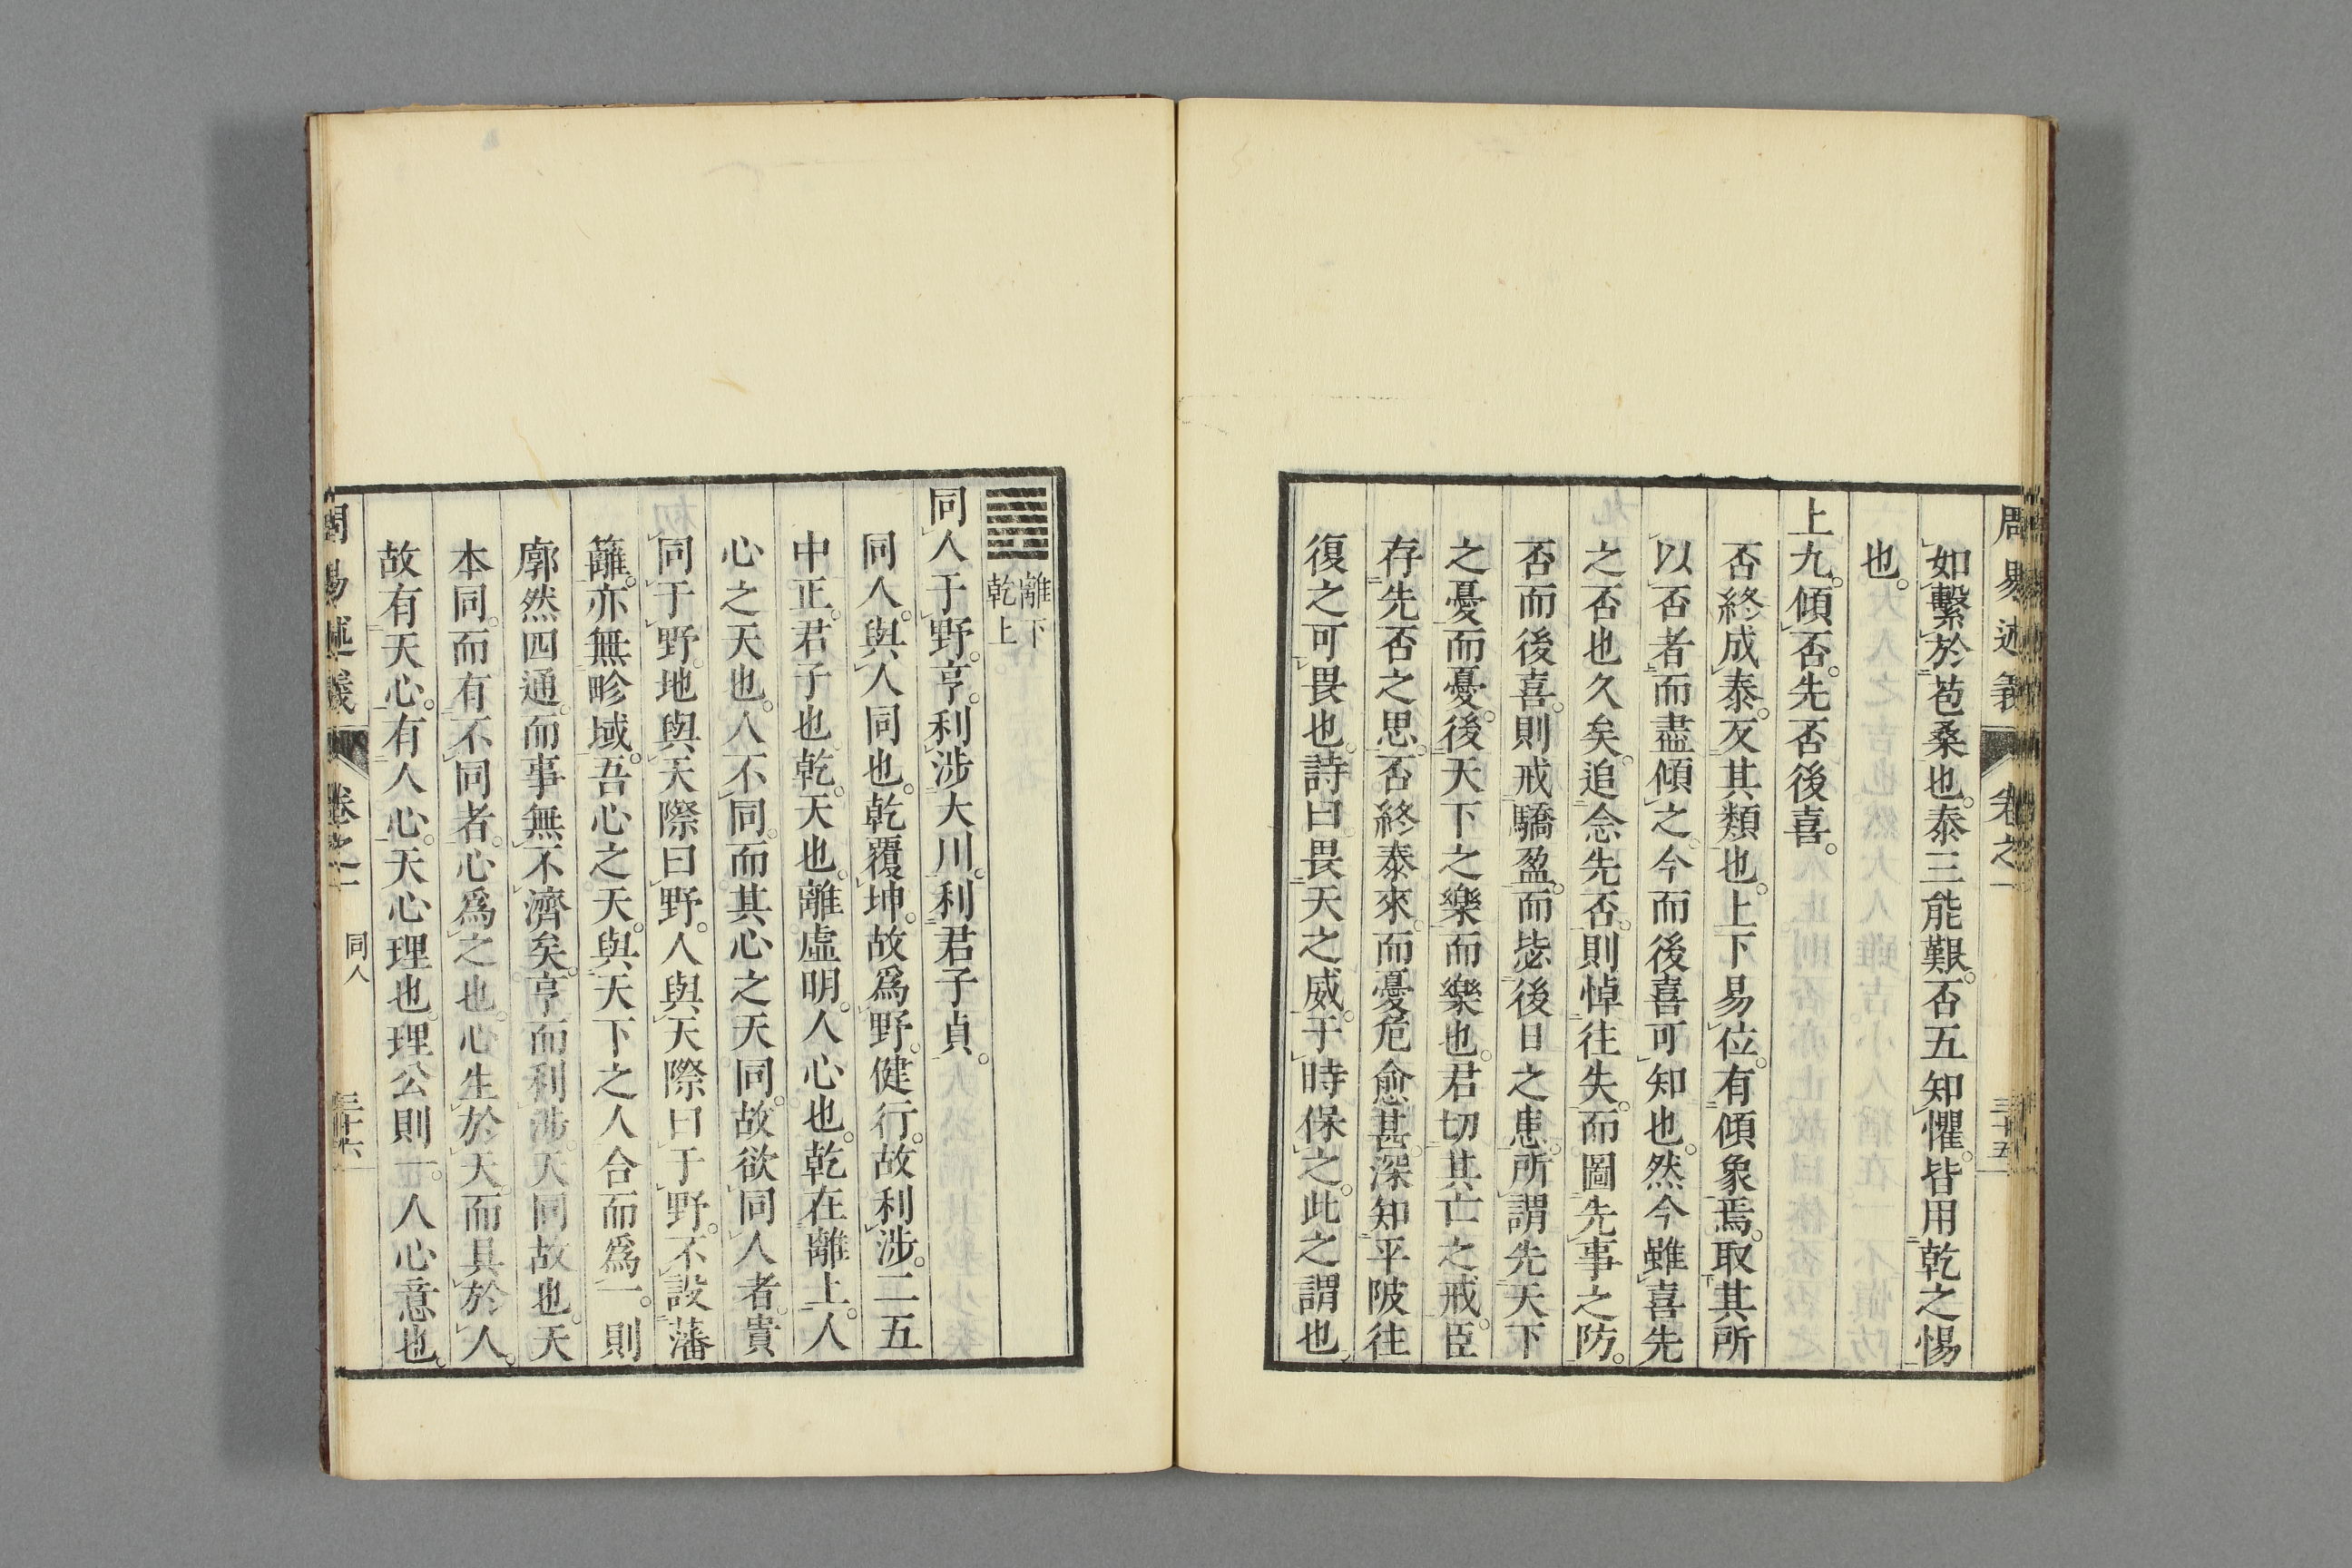 周易述義 卷之一 三十五
如繫於苞桑也。泰三能艱。否五知懼。皆用乾之惕
也。
上九。傾否。先否後喜。
否終成泰。反其類也。上下易位。有傾象焉。取其所
以否者而盡傾之。今而後喜可知也。然今雖喜先
之否也久矣。追念先否。則悼往失。而圖先事之防。
否而後喜。則戒驕盈。而毖後日之患。所謂先天下
之憂而憂。後天下之樂而樂也。君切其亡之戒。臣
存先否之思。否終泰來。而憂危愈甚。深知平陂往
復之可畏也。詩曰。畏天之威。于時保之。此之謂也。
離下
乾上
同人于野。亨。利涉大川。利君子貞。
同人。與人同也。乾覆坤。故爲野。健行。故利涉。二五
中正。君子也。乾。天也。離虛明。人心也。乾在離上。人
心之天也。人不同。而其心之天同。故欲同人者。貴
同于野。地與天際曰野。人與天際曰于野。不設藩
籬。亦無畛域。吾心之天。與天下之人合而爲一。則
廓然四通。而事無不濟矣。亨而利涉。天同故也。天
本同。而有不同者。心爲之也。心生於天。而具於人。
故有天心。有人心。天心理也。理公則一。人心意也。
周易述義 卷之一 同人 三十六